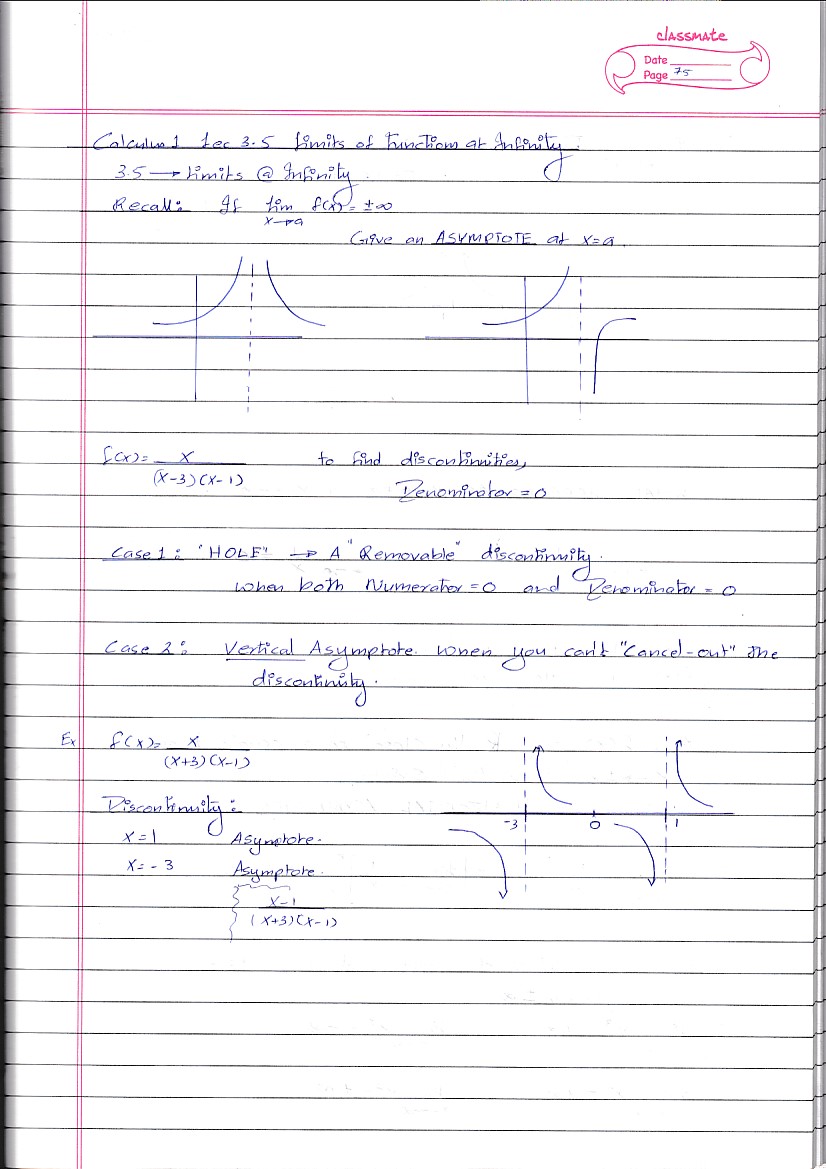 classmate
Date
Page 75
Calculus 1 Lec 3.5 Limits of Functions at Infinity.
3.5 → Limits @ Infinity.
Recall: If lim f(x) = ±∞
x→a
Give an ASYMPTOTE at x=a.
f(x) = x to find discontinuities,
(x-3)(x-1)
Denominator = 0
Case 1: "HOLE" → A "Removable" discontinuity.
when both Numerator = 0 and Denominator = 0
Case 2: Vertical Asymptote. When you can't "Cancel-out" the
discontinuity.
Ex f(x) = x
(x+3)(x-1)
Discontinuity:
-3 0 1
x=1 Asymptote.
x=-3 Asymptote.
x-1
(x+3)(x-1)